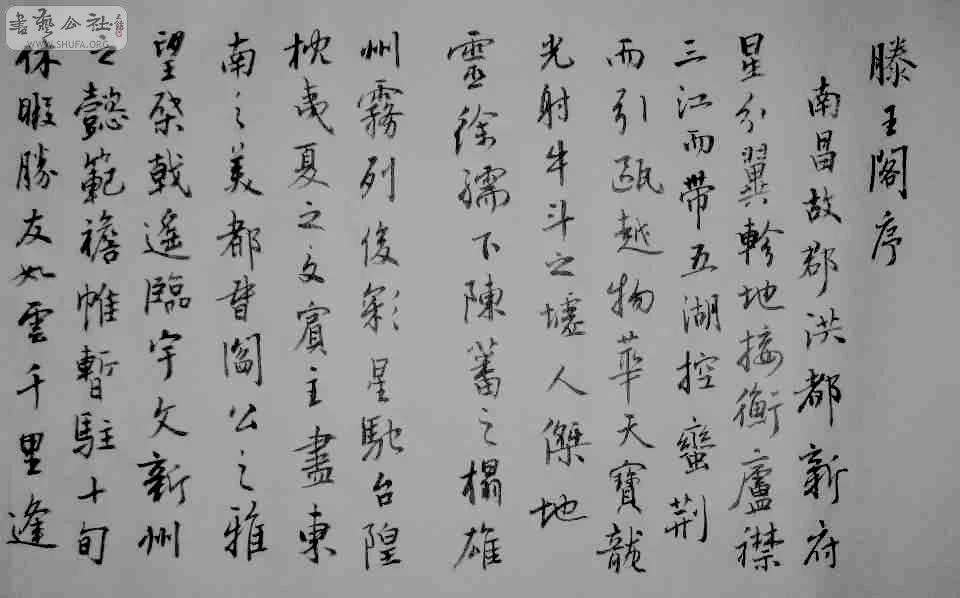 書藝公社
WWW.SHUFA.ORG
滕王閣序
南昌故郡洪都新府
星分翼軫地接衡廬襟
三江而帶五湖控蠻荊
而引甌越物華天寶龍
光射牛斗之墟人傑地
靈徐孺下陳蕃之榻雄
州霧列俊彩星馳台隍
枕夷夏之交賓主盡東
南之美都督閻公之雅
望棨戟遙臨宇文新州
之懿範襜帷暫駐十旬
休暇勝友如雲千里逢